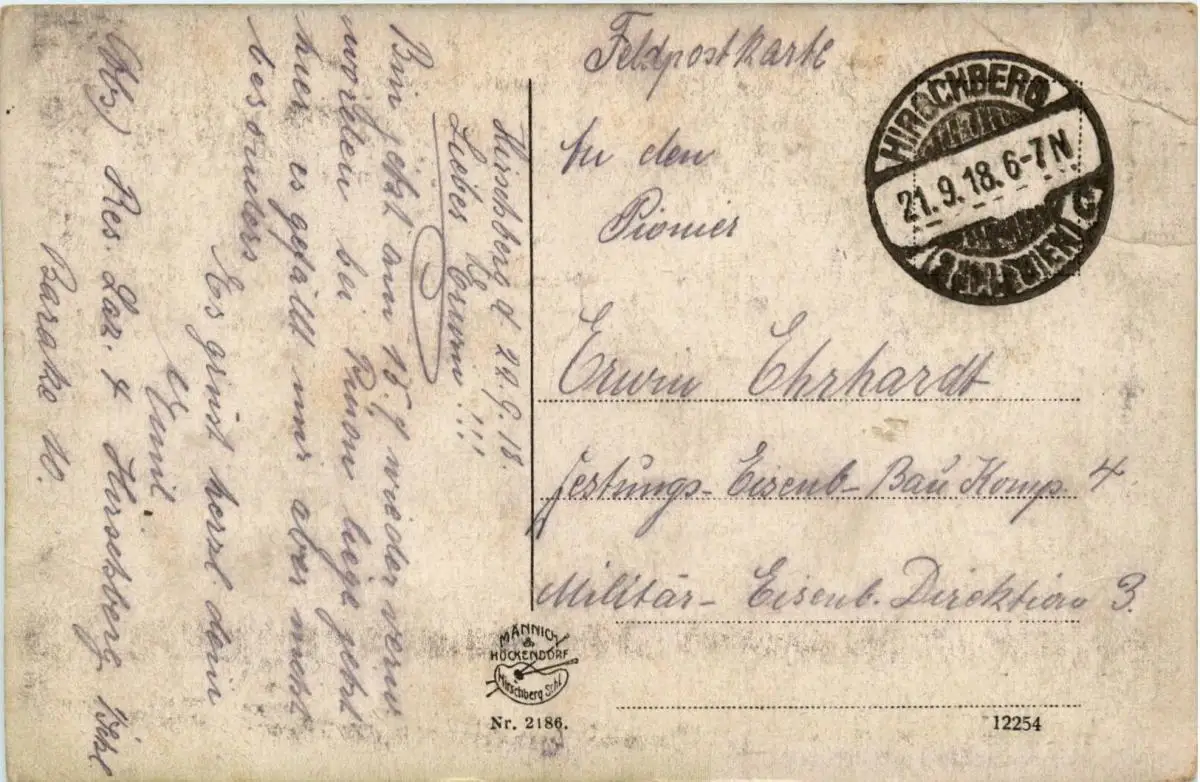 Feldpostkarte
An den
Pionier
Erwin Ehrhardt
Festungs- Eisenb- Bau Komp. 4
Militär- Eisenb. Direktion 3.
HIRSCHBERG
21.9.18.6-7N
(SCHLESIEN) C
Hirschberg d 20.9.18.
Liebes Erwin!!!
Bin jetzt am 15.9 wieder verw
worden bei liege jetzt
hier es gefällt mir aber nicht
besonders
Es grüst herzl dein
Emil.
Abs) Res. Laz. 4 Hirschberg
Barake 10.
MÄNNICH
&
HÖCKENDORF
Hirschberg Schl.
Nr. 2186.
12254